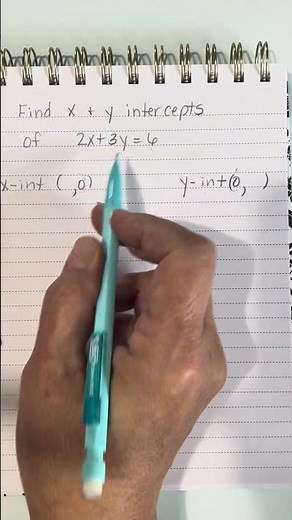 Find x + y intercepts
of 2x+3y=6
x-int ( ,0) y-int(0, )